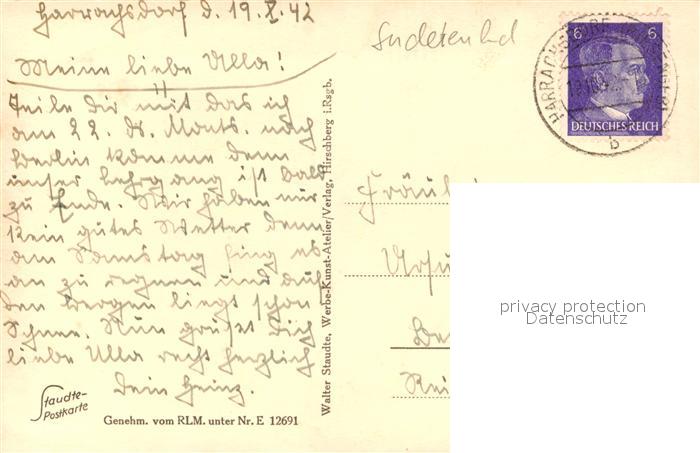 Harrachsdorf d. 19.X.42
Sudetenld
Meine liebe Ulla!
Teile Dir mit das ich
am 22. ds. Monts. nach
Berlin komme denn
unser Lehrgang ist bald
zu Ende. Wir haben nur
kein gutes Wetter denn
am Samstag fing es
an zu regnen und auf
den Bergen liegt schon
Schnee. Nun grüßt Dich
liebe Ulla recht herzlich
Dein Heinz.
Staudte-
Postkarte
Genehm. vom RLM. unter Nr. E 12691
Walter Staudte, Werbe-Kunst-Atelier/Verlag, Hirschberg i. Rsgb.
6 6
DEUTSCHES REICH
HARRACHSDORF
b
Fräul
Ursu
Be
privacy protection
Datenschutz